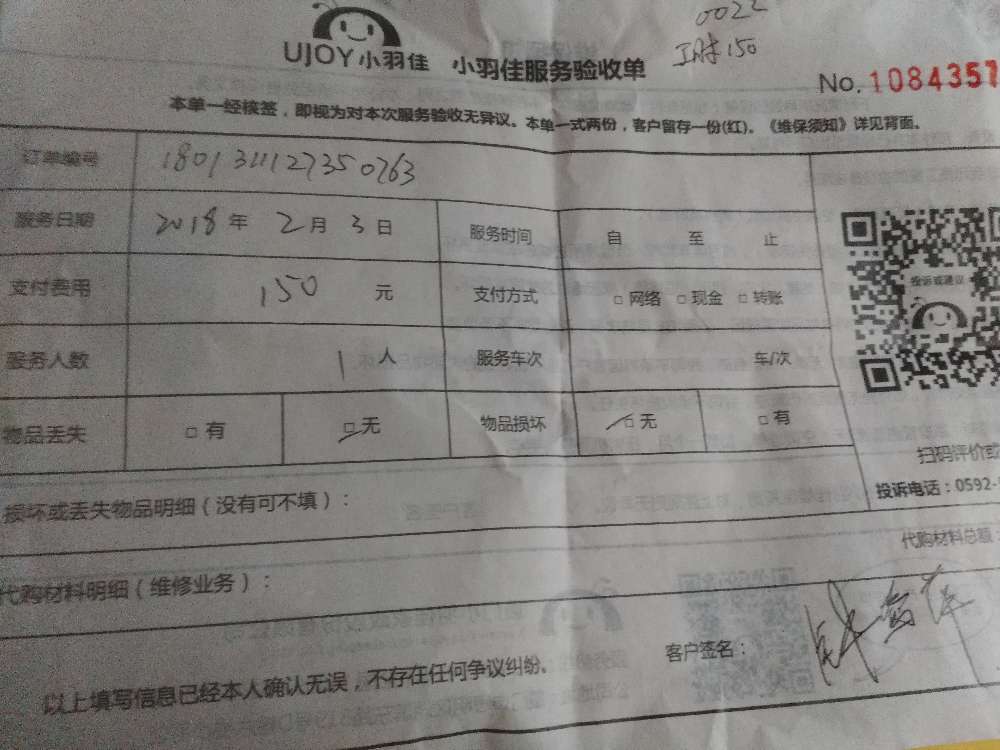 0022
工时150
UJOY小羽佳 小羽佳服务验收单
No. 1084357
本单一经核签，即视为对本次服务验收无异议。本单一式两份，客户留存一份(红)。《维保须知》详见背面。
订单编号 1801311127350763
服务日期 2018年 2月 3日 服务时间 自 至 止
支付费用 150 元 支付方式 □ 网络 □ 现金 □ 转账
投诉或建议
服务人数 1人 服务车次 车/次
物品丢失 □ 有 □无 物品损坏 □ 无 □ 有
扫码评价或
投诉电话：0592-
损坏或丢失物品明细（没有可不填）：
代购材料总额：
代购材料明细（维修业务）：
客户签名：
以上填写信息已经本人确认无误，不存在任何争议纠纷。